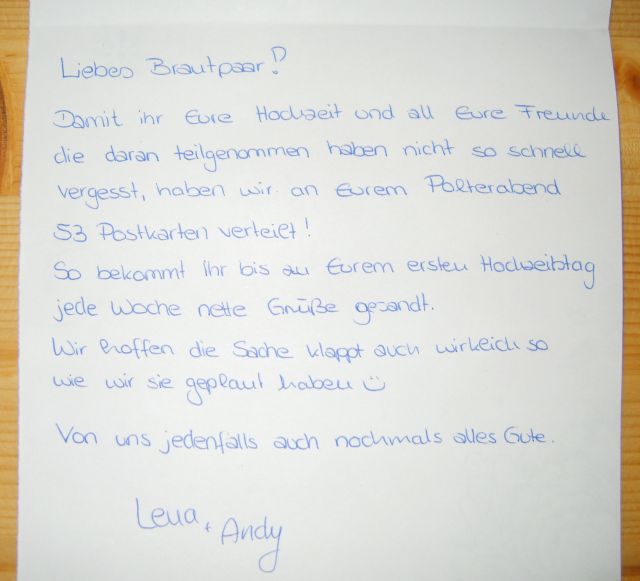 Liebes Brautpaar!
Damit ihr Eure Hochzeit und all Eure Freunde
die daran teilgenommen haben nicht so schnell
vergesst, haben wir an Eurem Polterabend
53 Postkarten verteilt!
So bekommt ihr bis zu Eurem ersten Hochzeitstag
jede Woche nette Grüße gesandt.
Wir hoffen die Sache klappt auch wirklich so
wie wir sie geplant haben ☺
Von uns jedenfalls auch nochmals alles Gute.
Lena + Andy